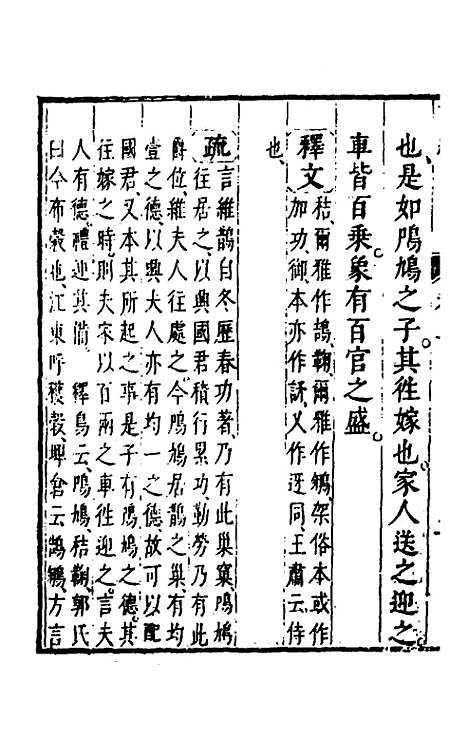 也是如鳲鳩之子其徃嫁也家人送之迎之
車皆百乘象有百官之盛
釋文
秸爾雅作鴶鞠爾雅作鵴架俗本或作
加功御本亦作訝又作迓同王肅云侍
也
疏
言維鵲自冬歷春功著乃有此巢窠鳲鳩
往居之以興國君積行累功勤勞乃有此
爵位維夫人往處之今鳲鳩居鵲之巢有均
壹之德以興夫人亦有均一之德故可以配
國君又本其所起之事是子有鳲鳩之德其
往嫁之時則夫家以百兩之車徃迎之言夫
人有德禮迎其備 釋鳥云鳲鳩秸鞠郭氏
曰今布穀也江東呼穫穀埤倉云鴶鵴方言